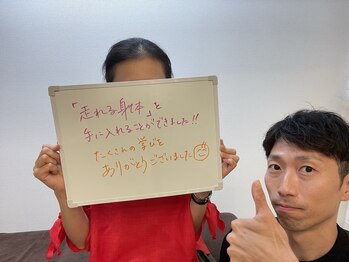 「走れる身体」を
手に入れることができました!!
たくさんの学びを
ありがとうございました